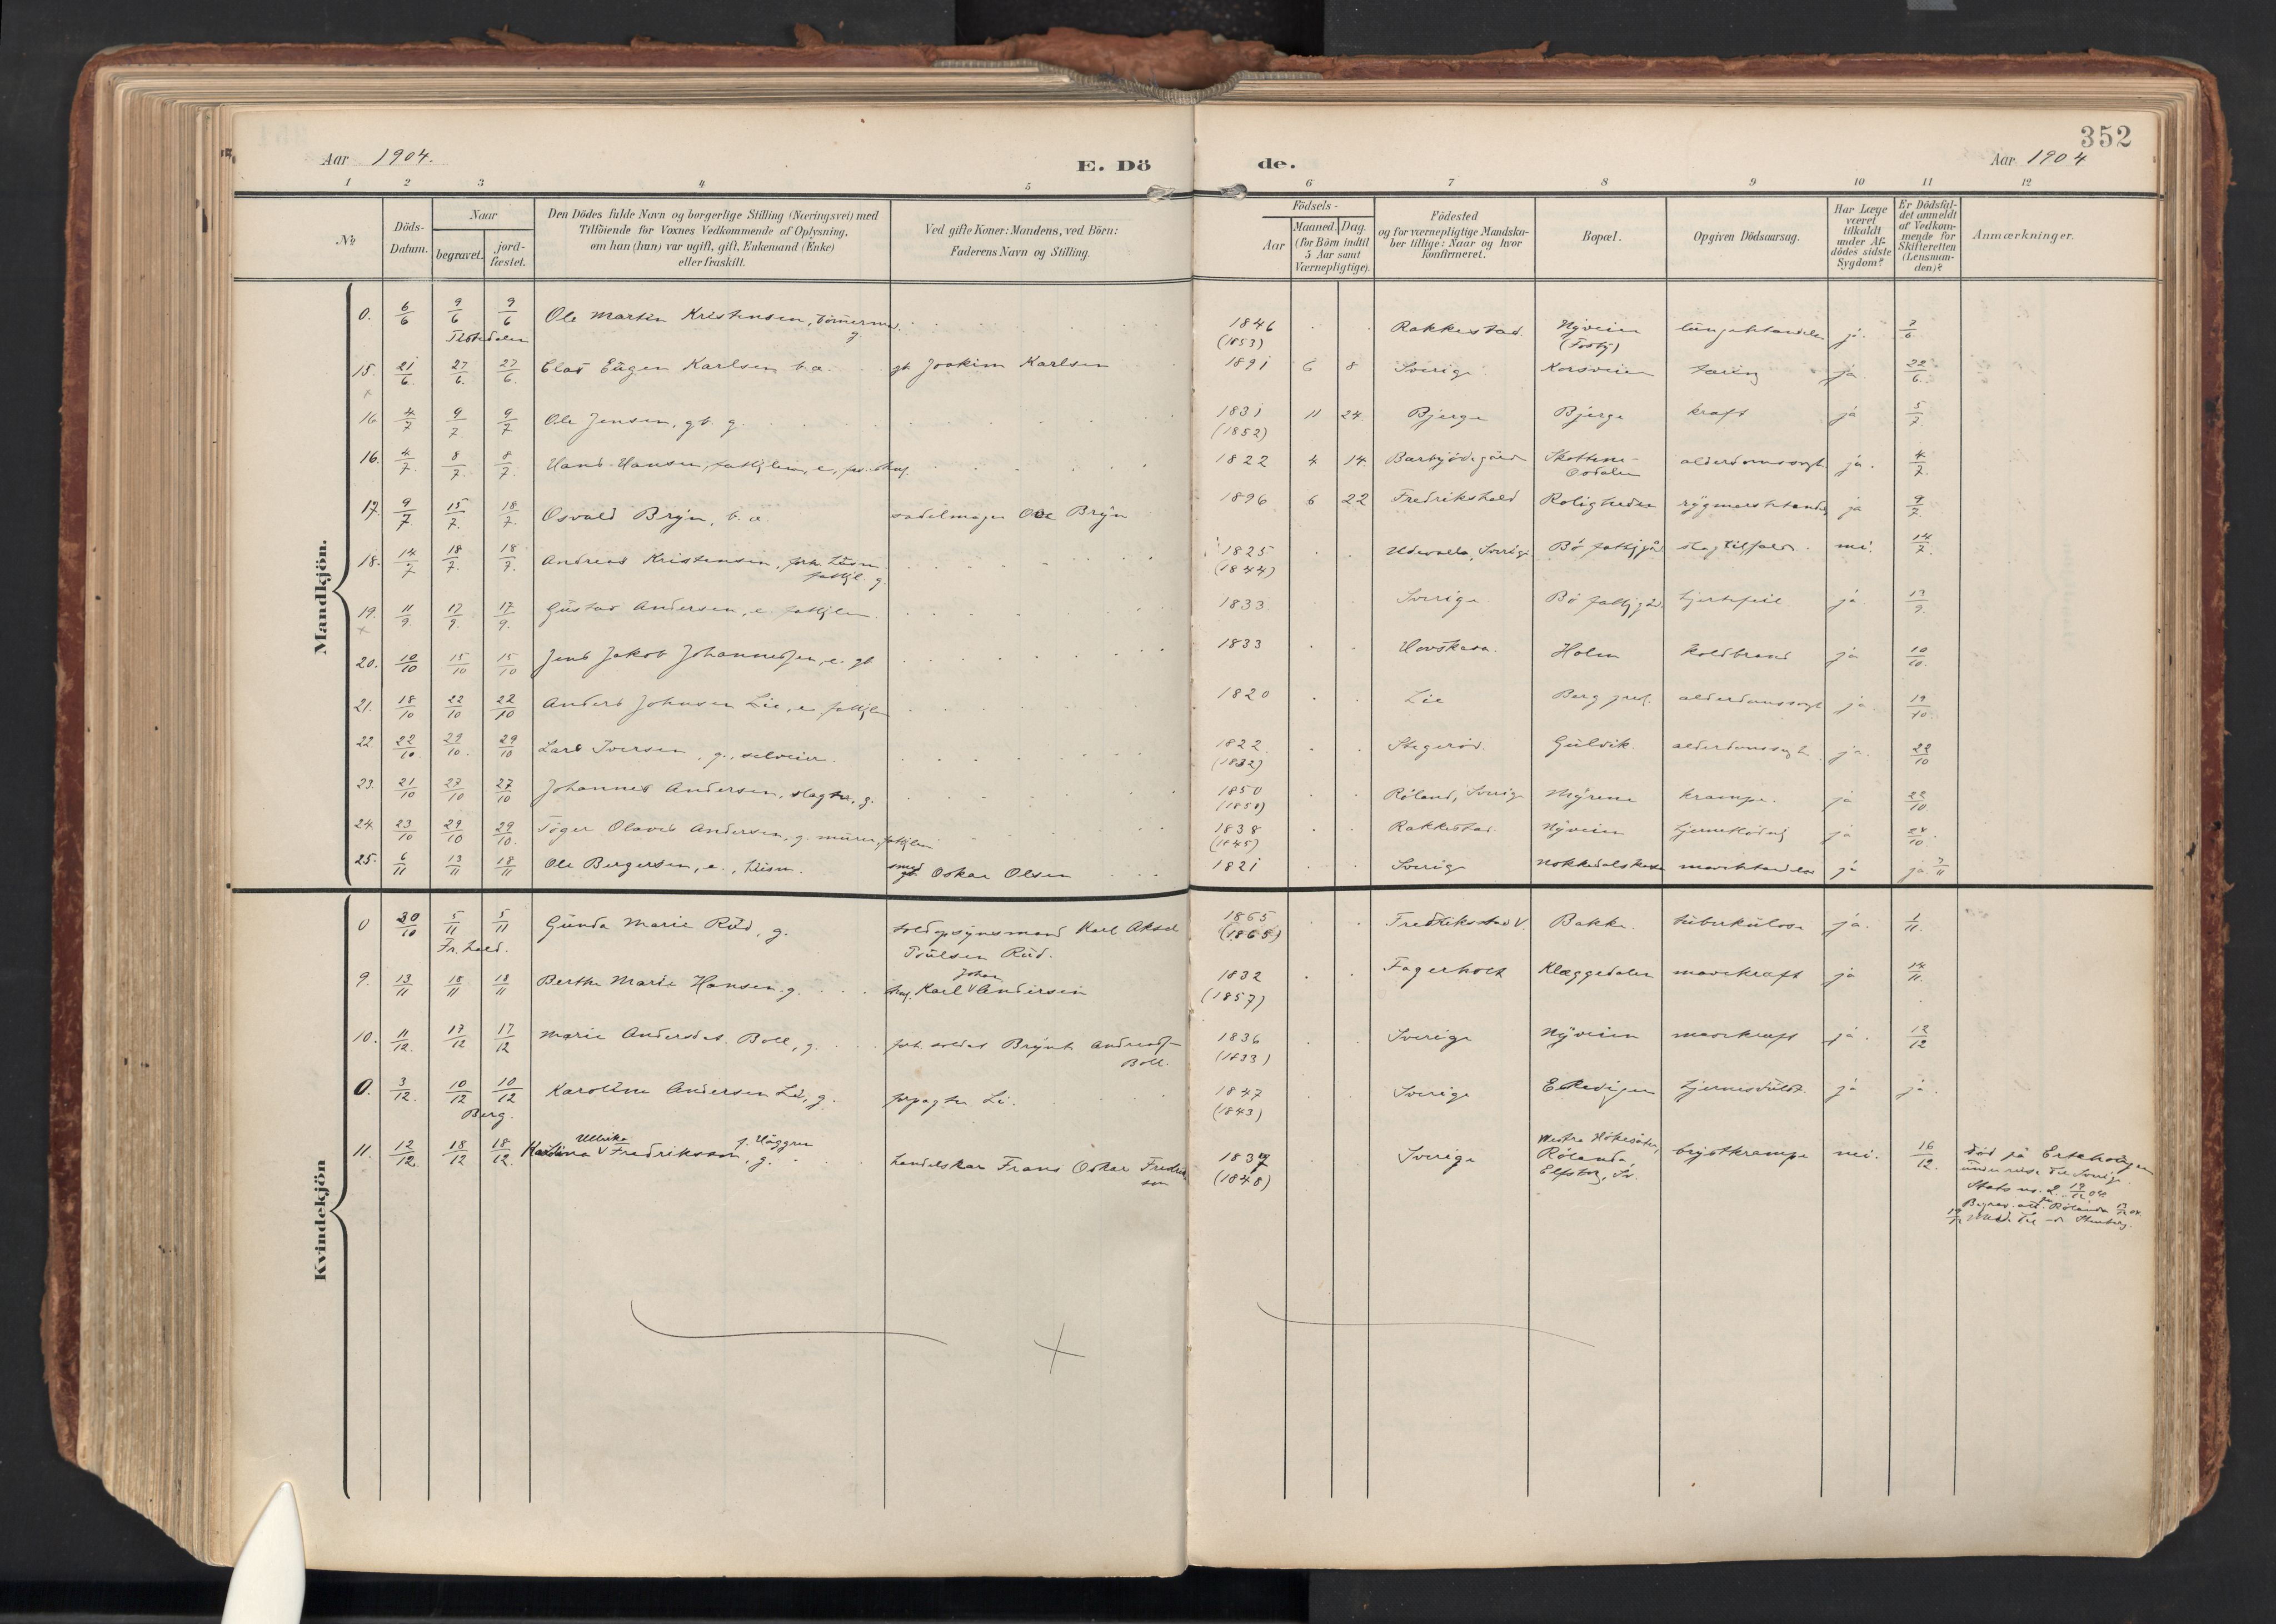 352
Aar 1904.
E. Dö de.
Aar 1904
1 2 3 4 5 6 7 8 9 10 11 12
No
Döds-Datum.
Naar
begravet.
jord-fæstet.
Den Dödes fulde Navn og borgerlige Stilling (Næringsvei) med
Tilföiende for Voxnes Vedkommende af Oplysning,
om han (hun) var ugift, gift, Enkemand (Enke)
eller fraskilt.
Ved gifte Koner: Mandens, ved Börn:
Faderens Navn og Stilling.
Födsels-
Aar
Maaned. Dag.
(for Börn indtil
5 Aar samt
Værnepligtige).
Födested
og for værnepligtige Mandska-
ber tillige: Naar og hvor
konfirmeret.
Bopæl.
Opgiven Dödsaarsag.
Har Læge
været
tilkaldt
under Af-
dödes sidste
Sygdom?
Er Dödsfal-
det anmeldt
af Vedkom-
mende for
Skifteretten
(Lensman-
den)?
Anmærkninger.
Mandkjön.
0. 6/6 9/6 9/6 Ole Martin Kristensen, tömmerm. g. 1846 Rakkestad. Nyveien ja. 7/6
Tistedalen (1853) (Forby)
15. 21/6. 27/6. 27/6. Claes Eugen Karlsen b.a. gb Joakim Karlsen 1891 6 8 Sverige Korsveien tæring ja 22/6.
16 4/7 9/7. 9/7. Ole Jensen, gb. g. 1831 11 24. Bjerge Bjerge kraft ja 5/7
(1852)
16. 4/7. 8/7. 8/7. Hans Hansen, fattiglem, e, 1822 4 14. Skottene- alderdomssvgh. ja. 4/7.
Osdalen
17. 9/7 15/7. 18/7. Osvald Bryn, b.a. sadelmager Ole Bryn 1896 6 22 Fredrikshald Roligheden ja 9/7.
18. 14/7 18/7. 18/7. Andreas Kristensen, forh. husm. 1825 Udevalla, Sverige Bö fattiggård slagtilfælde. nei. 14/7.
fattigl. g. (1844)
19. 11/9. 17/9. 17/9. Gustav Andersen, e. fattiglem. 1833 Sverige Bö fattiggård. hjertefeil ja 13/9.
20. 10/10 15/10 15/10 Jens Jakob Johannessen, e. gb 1833 Holm koldbrand ja 10/10.
21. 18/10 22/10 22/10 Anders Johnsen Lie, e. fattiglem 1820 Lie Berg prgj. alderdomssvgh ja. 19/10.
22. 22/10. 29/10. 29/10 Lars Iversen, g., selveier. 1822. Stegeröd. Gulvik. alderdomssvgh. ja. 22/10
(1832)
23. 21/10 27/10 27/10 Johannes Andersen, slagter, g. 1850 Röland, Sverige Myrene krampe. ja 22/10.
(1850)
24. 23/10 29/10 29/10. Olaves Andersen, g. murer, fattiglem 1838 Rakkestad. Nyveien hjerneblödnig ja 24/10.
(1845)
25. 6/11 13/11 18/11 Ole Bergersen, e., husm. smed gb. Oskar Olsen 1821 Sverige ja ja 7/11
Kvindekjön
0 30/10 5/11 5/11 Gunda Marie Rud, g. toldopsynsmand Karl Aksel 1865 Fredrikstad V. Bakke. tuberkulose ja. 1/11.
Fr.hald. Poulsen Rud. (1865)
9. 13/11 18/11 18/11 Berthe Marie Hansen g. Karl Johan Andersen 1832 Fagerholt Klæggedalen mavekræft ja 14/11.
(1857)
10. 11/12. 17/12 17/12 Marie Andersdat. Boll, g. forh. soldat Brynt Andreass. 1836 Sverige Nyveien mavekræft ja. 12/12
Boll. (1833)
0. 3/12. 10/12 10/12 Karoline Andersen Lie, g. forpagter Li. 1847 Sverige hjernesvulst. ja ja.
Berg. (1843)
11. 12/12. 18/12 18/12. Karolina Ullrika Fredriksson, f. Häggren g. handelskar Frans Oskar Fredrik- 1837 Sverige Westra Hökesäter, brystkrampe nei. 16/12. död på Erteholmen
son (1848) Rölanda under reise til Sverige.
Elfsborg, Sv.